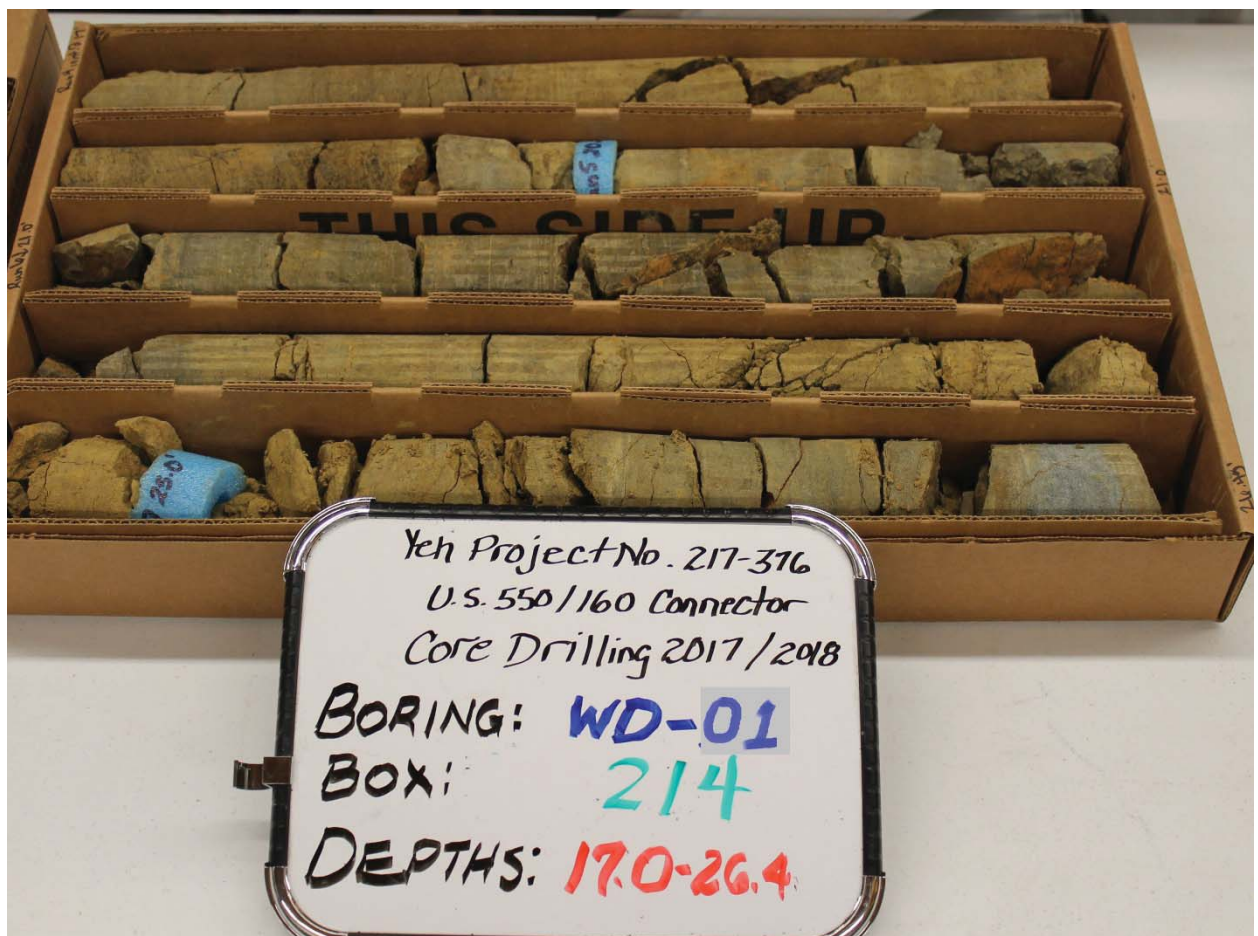 THIS SIDE UP
25.0'
Yeh Project No. 217-376
U.S. 550/160 Connector
Core Drilling 2017/2018
BORING: WD-01
BOX: 2/4
DEPTHS: 17.0-26.4